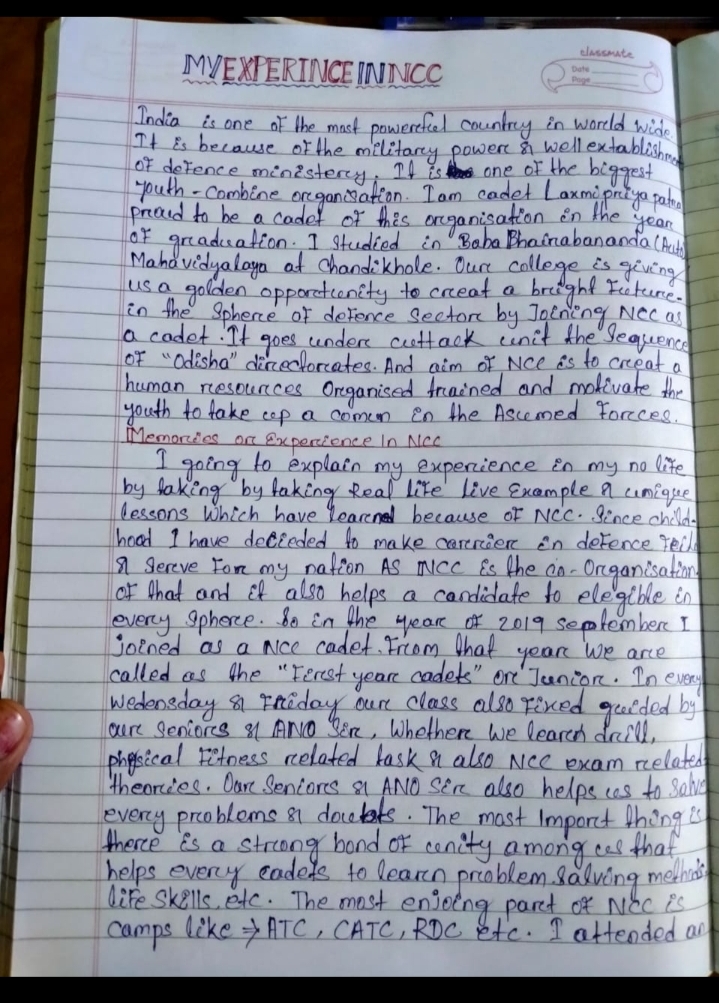 classmate
Date
Page
MY EXPERINCE IN NCC
India is one of the most powereful country in woreld wide.
It is because of the military powere & well extablishment
of defence ministerey. It is one of the biggest
youth-Combine oreganisation. I am cadet Laxmipriya patra
proud to be a cadet of this oreganisation in the year
of greaduation. I Studied in Baba Bhairabananda (Auto)
Mahavidyalaya at Chandikhole. Oure college is giving
us a golden opporetunity to creeat a breight Future
in the Sphere of defence Sectore by Joining NCC as
a cadet. It goes undere cuttack unit the Sequence
of "Odisha" direectoreates. And aim of NCC is to creeat a
human resources Organised trained and motivate the
youth to take up a comun in the Aseumed Forces.
Memories ore Experience In Ncc
I going to explain my experience in my no life
by taking by taking Real life live Example & unique
lessons Which have learened because of NCC. Since child-
hood I have decieded to make carerier in defence Feild
& Sereve Fore my nation AS NCC is the co-Organisation
of that and it also helps a candidate to elegible in
every Sphere. So in the year of 2019 septembere I
joined as a Ncc cadet. From that year We are
called as the "Ferest year cadets" ore Juniore. In every
Wedensday & Friday oure class also Fixed guided by
oure Seniores & ANO Sir, Whethere we learen drill,
physical Fitness related task & also NCC exam related
theories. Oure Seniors & ANO Sir also helps us to Solve
every problems & doubts. The most Import thing is
there is a streong bond of unity among us that
helps every cadets to learen problem Salving methods,
life Skills, etc. The most enjoing paret of Ncc is
camps like → ATC, CATC, RDC etc. I attended an